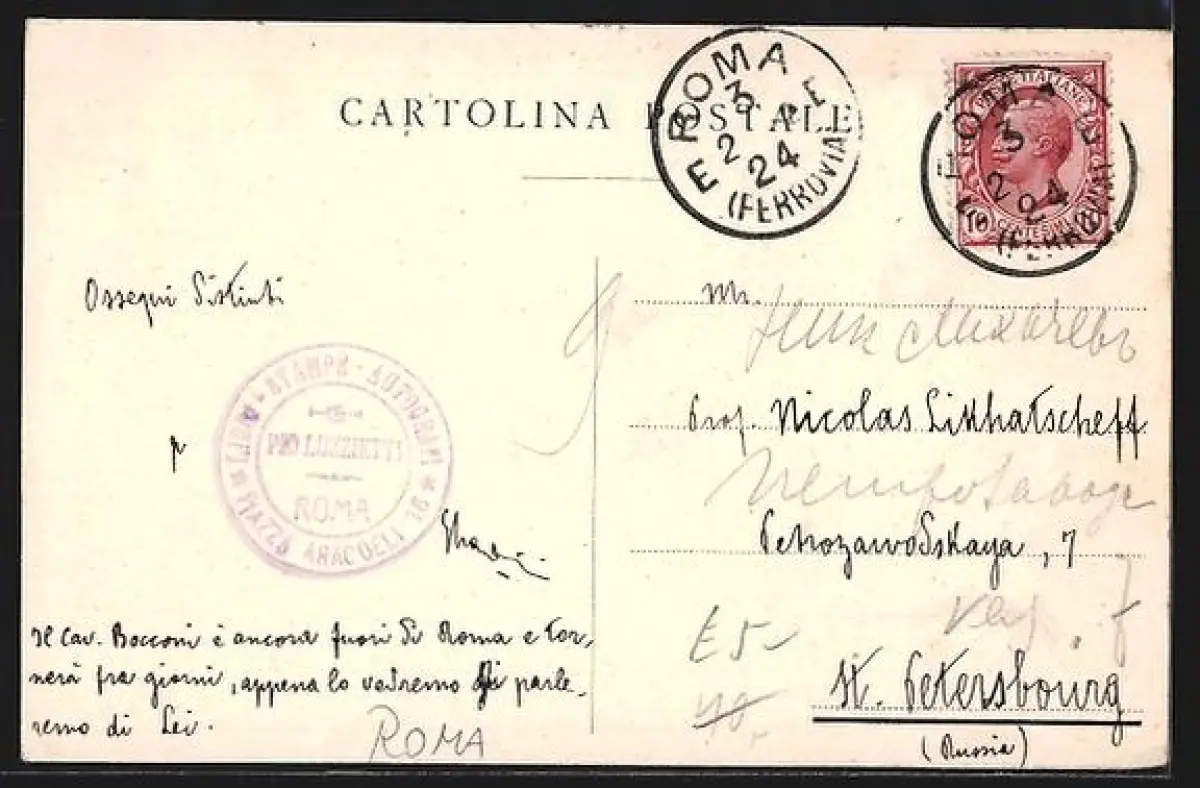 CARTOLINA POSTALE
ROMA
3
2
24
(FERROVIA)
POSTE ITALIANE
10
CENTESIMI
ROMA
3
2
24
(FERROVIA)
Ossequi distinti
p
LIBRI - STAMPE - AUTOGRAFI
PIO LUZZIETTI
ROMA
PIAZZA ARACOELI 16
Il Cav. Bocconi è ancora fuori di Roma e tor-
nerà fra giorni, appena lo vedremo gli parle-
remo di Lei.
ROMA
Mr.
Ник Лихачевъ
Prof. Nicolas Likhatscheff
Petrozawodskaya, 7
£ 5-
St. Petersbourg
(Russia)